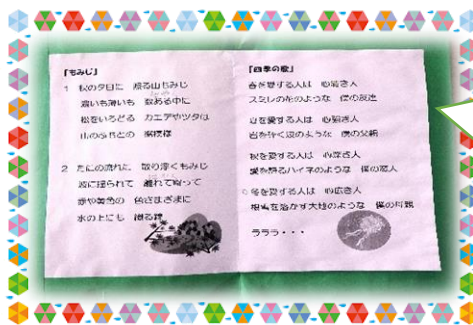 「もみじ」
1 秋の夕日に 照る山もみじ
濃いも薄いも 数ある中に
松をいろどる カエデやツタは
山のふもとの 裾模様
2 たにの流れに 散り浮くもみじ
波に揺られて 離れて寄って
赤や黄色の 色さまざまに
水の上にも 織る錦
「四季の歌」
春を愛する人は 心清き人
スミレの花のような 僕の友達
夏を愛する人は 心強き人
岩を砕く波のような 僕の父親
秋を愛する人は 心深き人
愛を語るハイネのような 僕の恋人
冬を愛する人は 心広き人
根雪を溶かす大地のような 僕の母親
ラララ・・・